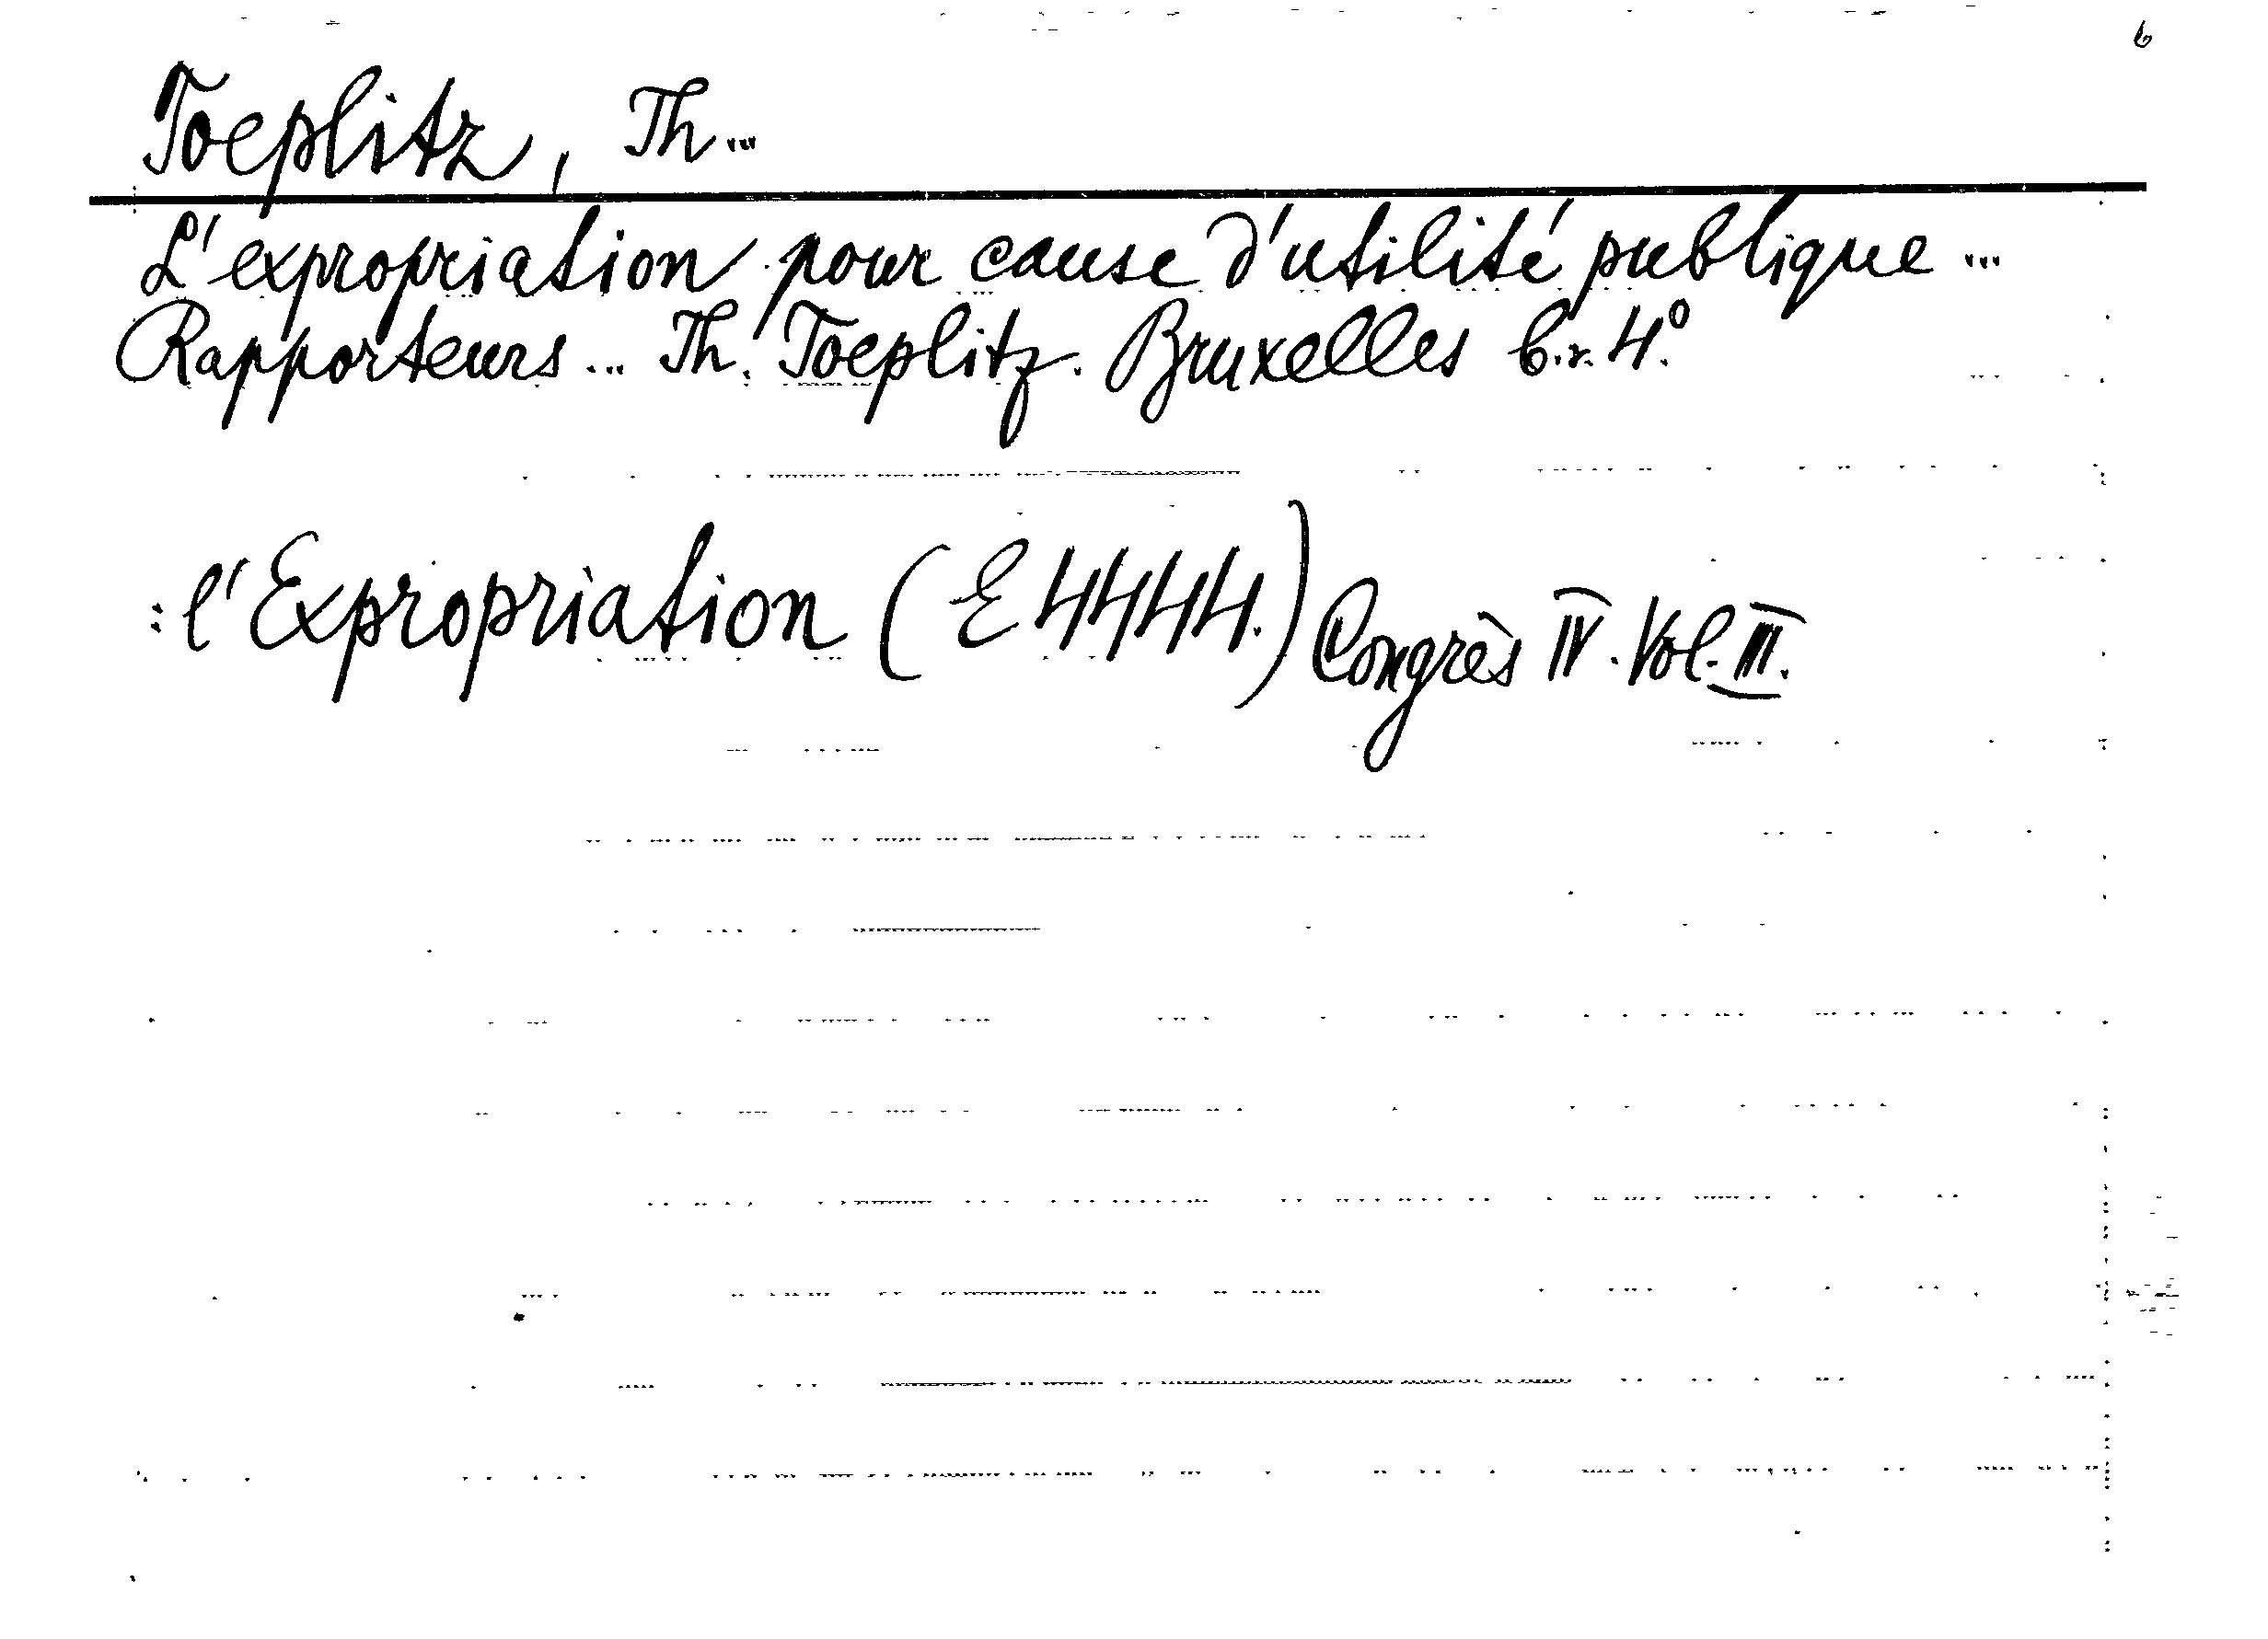 6
Toeplitz, Th...
L'expropriation pour cause d'utilité publique...
Rapporteurs... Th. Toeplitz. Bruxelles b.r. 4.º
: l'Expropriation (E 4444.) Congrès IV. Vol. III.